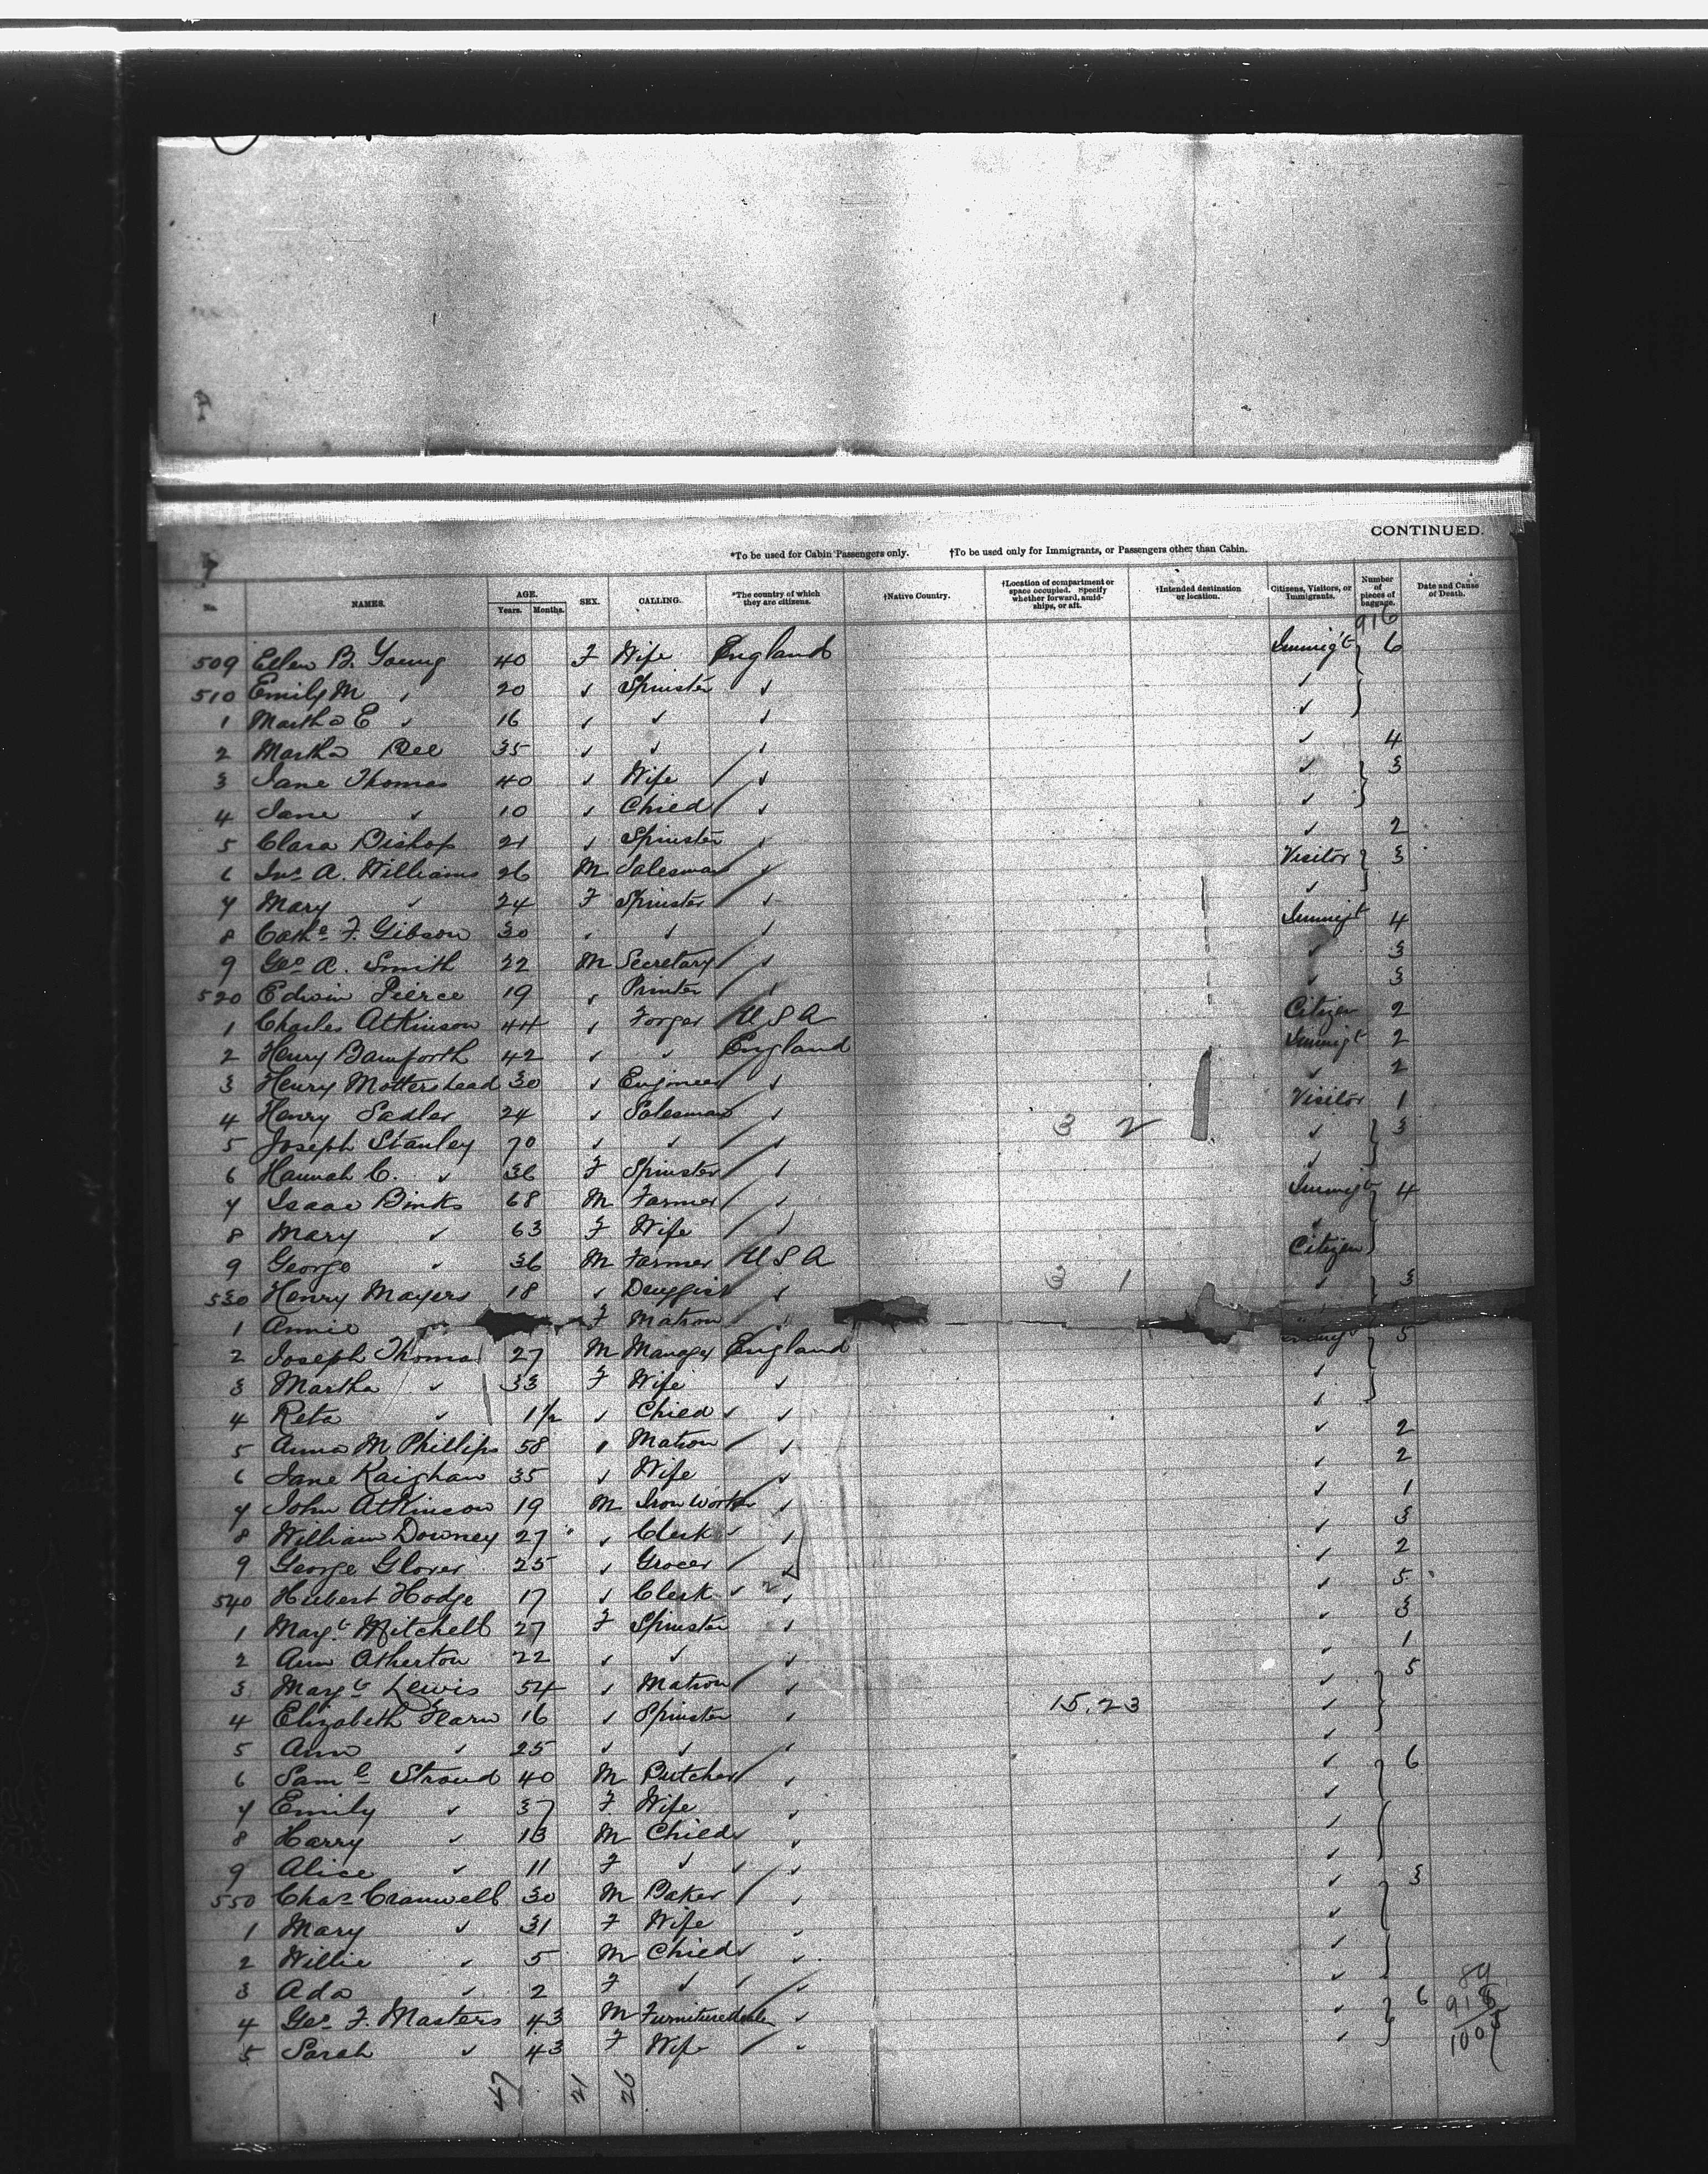 CONTINUED.
*To be used for Cabin Passengers only. †To be used only for Immigrants, or Passengers other than Cabin.
No. NAMES. AGE. Years. Months. SEX. CALLING. *The country of which they are citizens. †Native Country. †Location of compartment or space occupied. Specify whether forward, amidships, or aft. †Intended destination or location. Citizens, Visitors, or Immigrants. Number of pieces of baggage. Date and Cause of Death.
916
509 Ellen B. Young 40 F Wife England Immigt 6
510 Emily M " 20 " Spinster " "
1 Martha E " 16 " " " "
2 Martha Bee 35 " " " " 4
3 Jane Thomas 40 " Wife " " 3
4 Jane " 10 " Child " "
5 Clara Bishop 21 " Spinster " " 2
6 Jno. A. Williams 26 M Salesman " Visitor 3
7 Mary " 24 F Spinster " "
8 Cathe F. Gibson 30 " " " Immigt 4
9 Geo A. Smith 22 M Secretary " " 3
520 Edwin Pierce 19 " Printer " " 3
1 Charles Atkinson 44 " Forger U S A Citizen 2
2 Henry Bamforth 42 " " England Immigt 2
3 Henry Mottershead 30 " Engineer " " 2
4 Henry Sadler 24 " Salesman " Visitor 1
5 Joseph Stanley 70 " " " 3 2 " 3
6 Hannah C. " 36 F Spinster " "
7 Isaac Binks 68 M Farmer " Immigt 4
8 Mary " 63 F Wife " "
9 George " 36 M Farmer U S A Citizen
530 Henry Mayers 18 " Druggist " 3 1 " 3
1 Annie F Matron "
2 Joseph Thomas 27 M Manager England 5
3 Martha " 33 F Wife " "
4 Reta " 1½ " Child " "
5 Anna M Phillips 58 " Matron " " 2
6 Jane Kaighan 35 " Wife " " 2
7 John Atkinson 19 M Iron Worker " " 1
8 William Downey 27 " Clerk " " 3
9 George Glover 25 " Grocer " " 2
540 Hubert Hodge 17 " Clerk " " 5
1 Margt Mitchell 27 F Spinster " " 3
2 Ann Atherton 22 " " " " 1
3 Margt Lewis 54 " Matron " " 5
4 Elizabeth Fearn 16 " Spinster " 15.23 "
5 Ann " 25 " " " "
6 Saml Stroud 40 M Butcher " " 6
7 Emily " 37 F Wife " "
8 Harry " 13 M Child " "
9 Alice " 11 F " " "
550 Chas Cranwell 30 M Baker " " 3
1 Mary " 31 F Wife " "
2 Willie " 5 M Child " "
3 Ada " 2 F " " "
4 Geo. F. Masters 43 M Furniture dealer " " 6
5 Sarah " 43 F Wife " "
89
916
1005
47 21 26